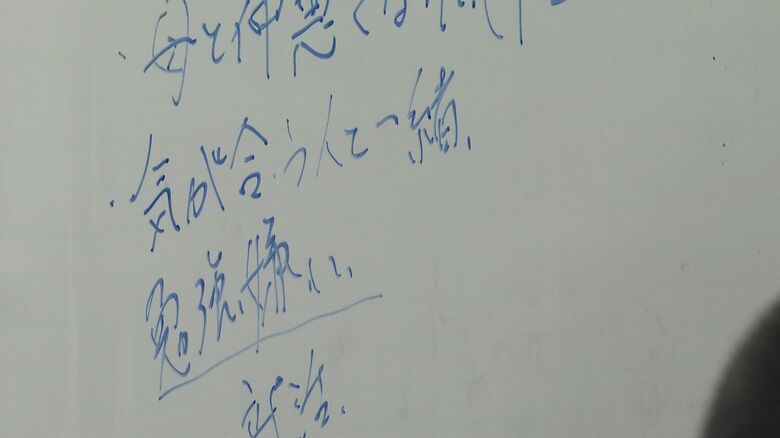 ・母と仲悪く
・気が合う人と一緒
勉強嫌い